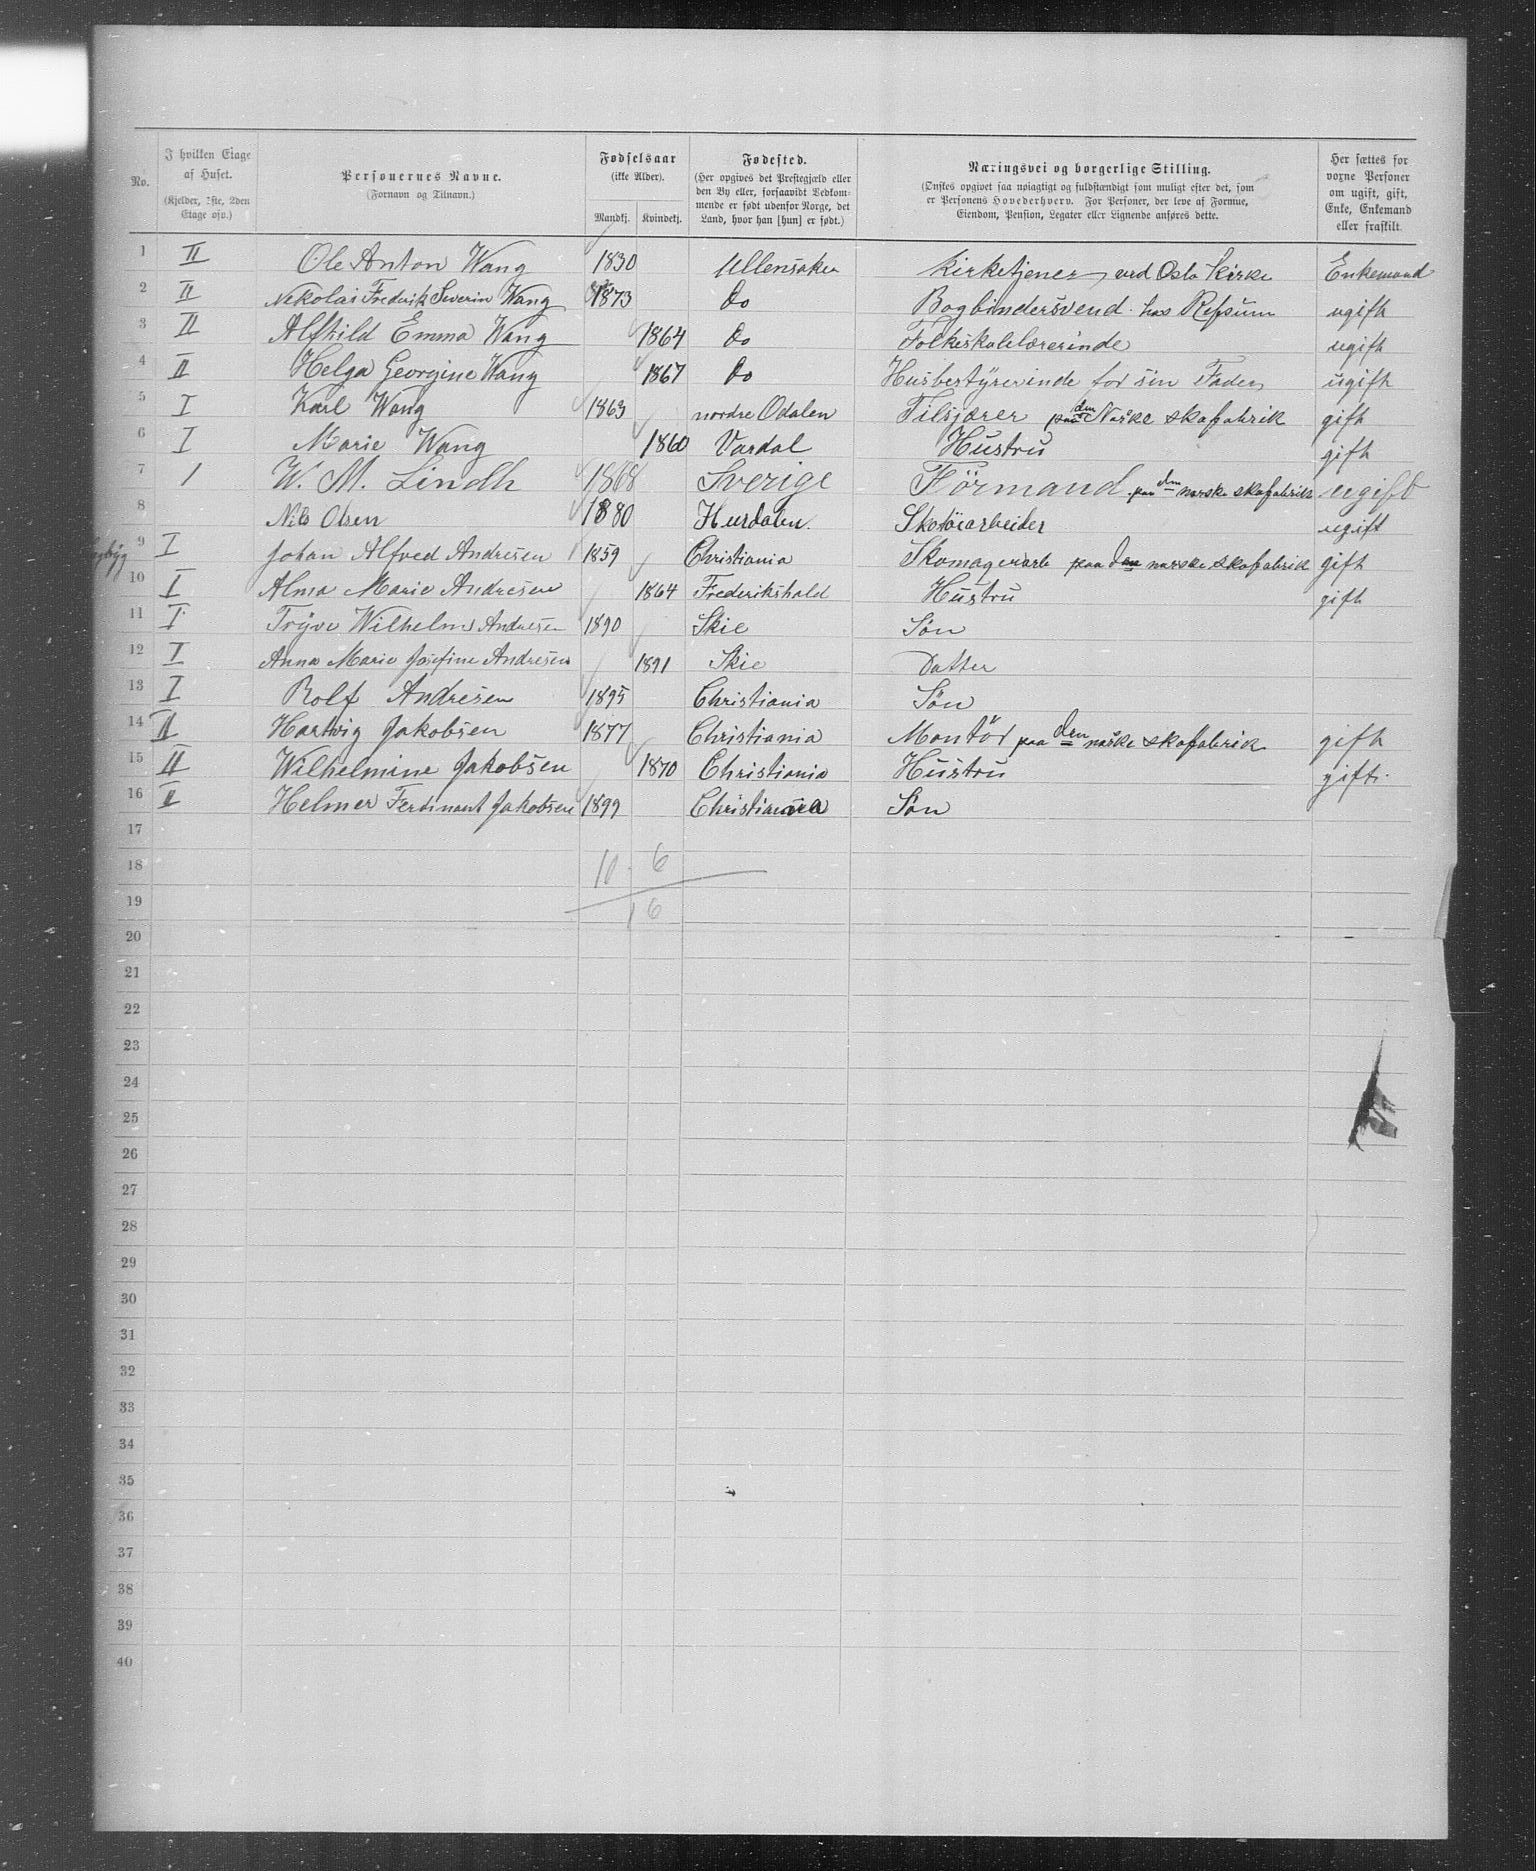 No.
I hvilken Etage af Huset.
(Kjelder, 1ste, 2den Etage osv.)
Personernes Navne.
(Fornavn og Tilnavn.)
Fødselsaar
(ikke Alder).
Mandkj. Kvindekj.
Fødested.
(Her opgives det Prestegjæld eller
den By eller, forsaavidt Vedkom-
mende er født udenfor Norge, det
Land, hvor han [hun] er født.)
Næringsvei og borgerlige Stilling.
(Ønskes opgivet saa nøiagtigt og fuldstændigt som muligt efter det, som
er Personens Hovederhverv. For Personer, der leve af Formue,
Eiendom, Pension, Legater eller Lignende anføres dette.
Her sættes for
voxne Personer
om ugift, gift,
Enke, Enkemand
eller fraskilt.
1 II Ole Anton Wang 1830 Ullensaker Kirketjener ved Oslo Kirke Enkemand
2 II Nikolai Fredrik Severin Wang 1873 Do Bogbindersvend hos Refsum ugift
3 II Alfhild Emma Wang 1864 Do Folkeskolelærerinde ugift
4 II Helga Georgine Wang 1867 Do Husbestyrerinde for sin Fader ugift
5 I Karl Wang 1863 nordre Odalen Tilsjærer paa den Norske skofabrik gift
6 I Marie Wang 1860 Vardal Hustru gift
7 I W. M. Lindh 1868 Sverige Förmand paa den norske skofabrik ugift
8 Nils Olsen 1880 Hurdalen Skotöiarbeider ugift
9 I Johan Alfred Andresen 1859 Christiania Skomagerarb paa den norske skofabrik gift
10 I Alma Marie Andresen 1864 Frederikshald Hustru gift
11 I Tryve Wilhelm Andresen 1890 Skie Sön
12 I Anna Marie Josefine Andresen 1891 Skie Datter
13 I Rolf Andresen 1895 Christiania Sön
14 II Hartvig Jakobsen 1877 Christiania Montör paa den norske skofabrik gift
15 II Wilhelmine Jakobsen 1870 Christiania Hustru gift
16 II Helmer Ferdinant Jakobsen 1899 Christiania Sön
17
18 10 - 6
19 16
20
21
22
23
24
25
26
27
28
29
30
31
32
33
34
35
36
37
38
39
40